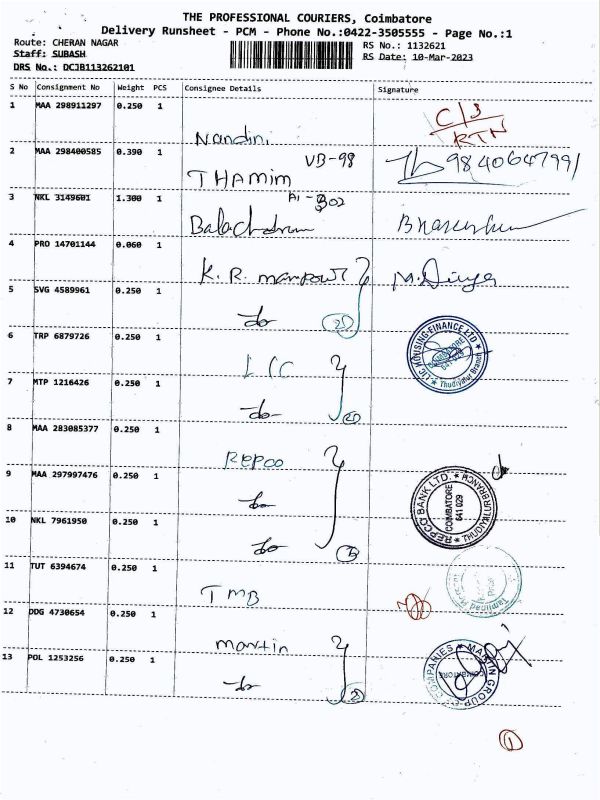 THE PROFESSIONAL COURIERS, Coimbatore
Delivery Runsheet - PCM - Phone No.:0422-3505555 - Page No.:1
Route: CHERAN NAGAR
RS No.: 1132621
Staff: SUBASH
RS Date: 10-Mar-2023
DRS No.: DCJB113262101
S No Consignment No Weight PCS Consignee Details Signature
1 MAA 298911297 0.250 1
C/s
RTN
Nandini
2 MAA 298400585 0.390 1
VB-98
9840647991
THAMIM
3 NKL 3149601 1.300 1
Balachdram
4 PRO 14701144 0.060 1
K. R. manpower
M. Divya
5 SVG 4589961 0.250 1
do
2
6 TRP 6879726 0.250 1
LIC
LIC HOUSING FINANCE LTD
COIMBATORE
Thudiyalur Branch
7 MTP 1216426 0.250 1
do
8 MAA 283085377 0.250 1
REPCO
9 MAA 297997476 0.250 1
do
REPCO BANK LTD.
COIMBATORE
641 029
THUDIYALUR BRANCH
10 NKL 7961950 0.250 1
do
11 TUT 6394674 0.250 1
TMB
12 DDG 4730654 0.250 1
martin
13 POL 1253256 0.250 1
do
MARTIN GROUP OF COMPANIES
COIMBATORE
1